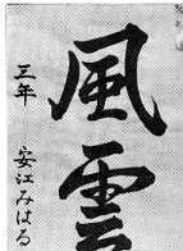 風雲
三年 安江みはる